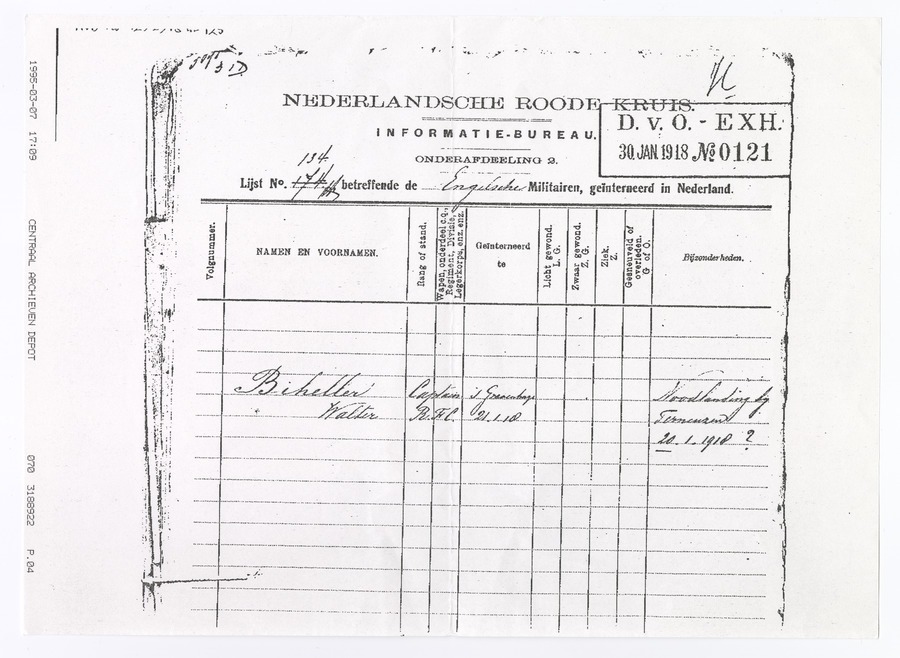 NEDERLANDSCHE ROODE KRUIS.
INFORMATIE-BUREAU.
ONDERAFDEELING 2.
D. v. O. - EXH.
30 JAN. 1918 № 0121
134
Lijst No. 174 betreffende de Engelsche Militairen, geïnterneerd in Nederland.
Volgnummer.
NAMEN EN VOORNAMEN.
Rang of stand.
Wapen, onderdeel c.q.,
Regiment, Divisie,
Legerkorps, enz. enz.
Geïnterneerd
te
Licht gewond.
L. G.
Zwaar gewond.
Z. G.
Ziek.
Z.
Gesneuveld of
overleden.
G of O.
Bijzonderheden.
Biheller Captain 's Gravenhage Noodlanding by
Walter R.F.C. 21.1.18 Terneuzen
20.1.1918 ?
1995-03-07 17:09 CENTRAAL ARCHIEVEN DEPOT 070 3188922 P.04